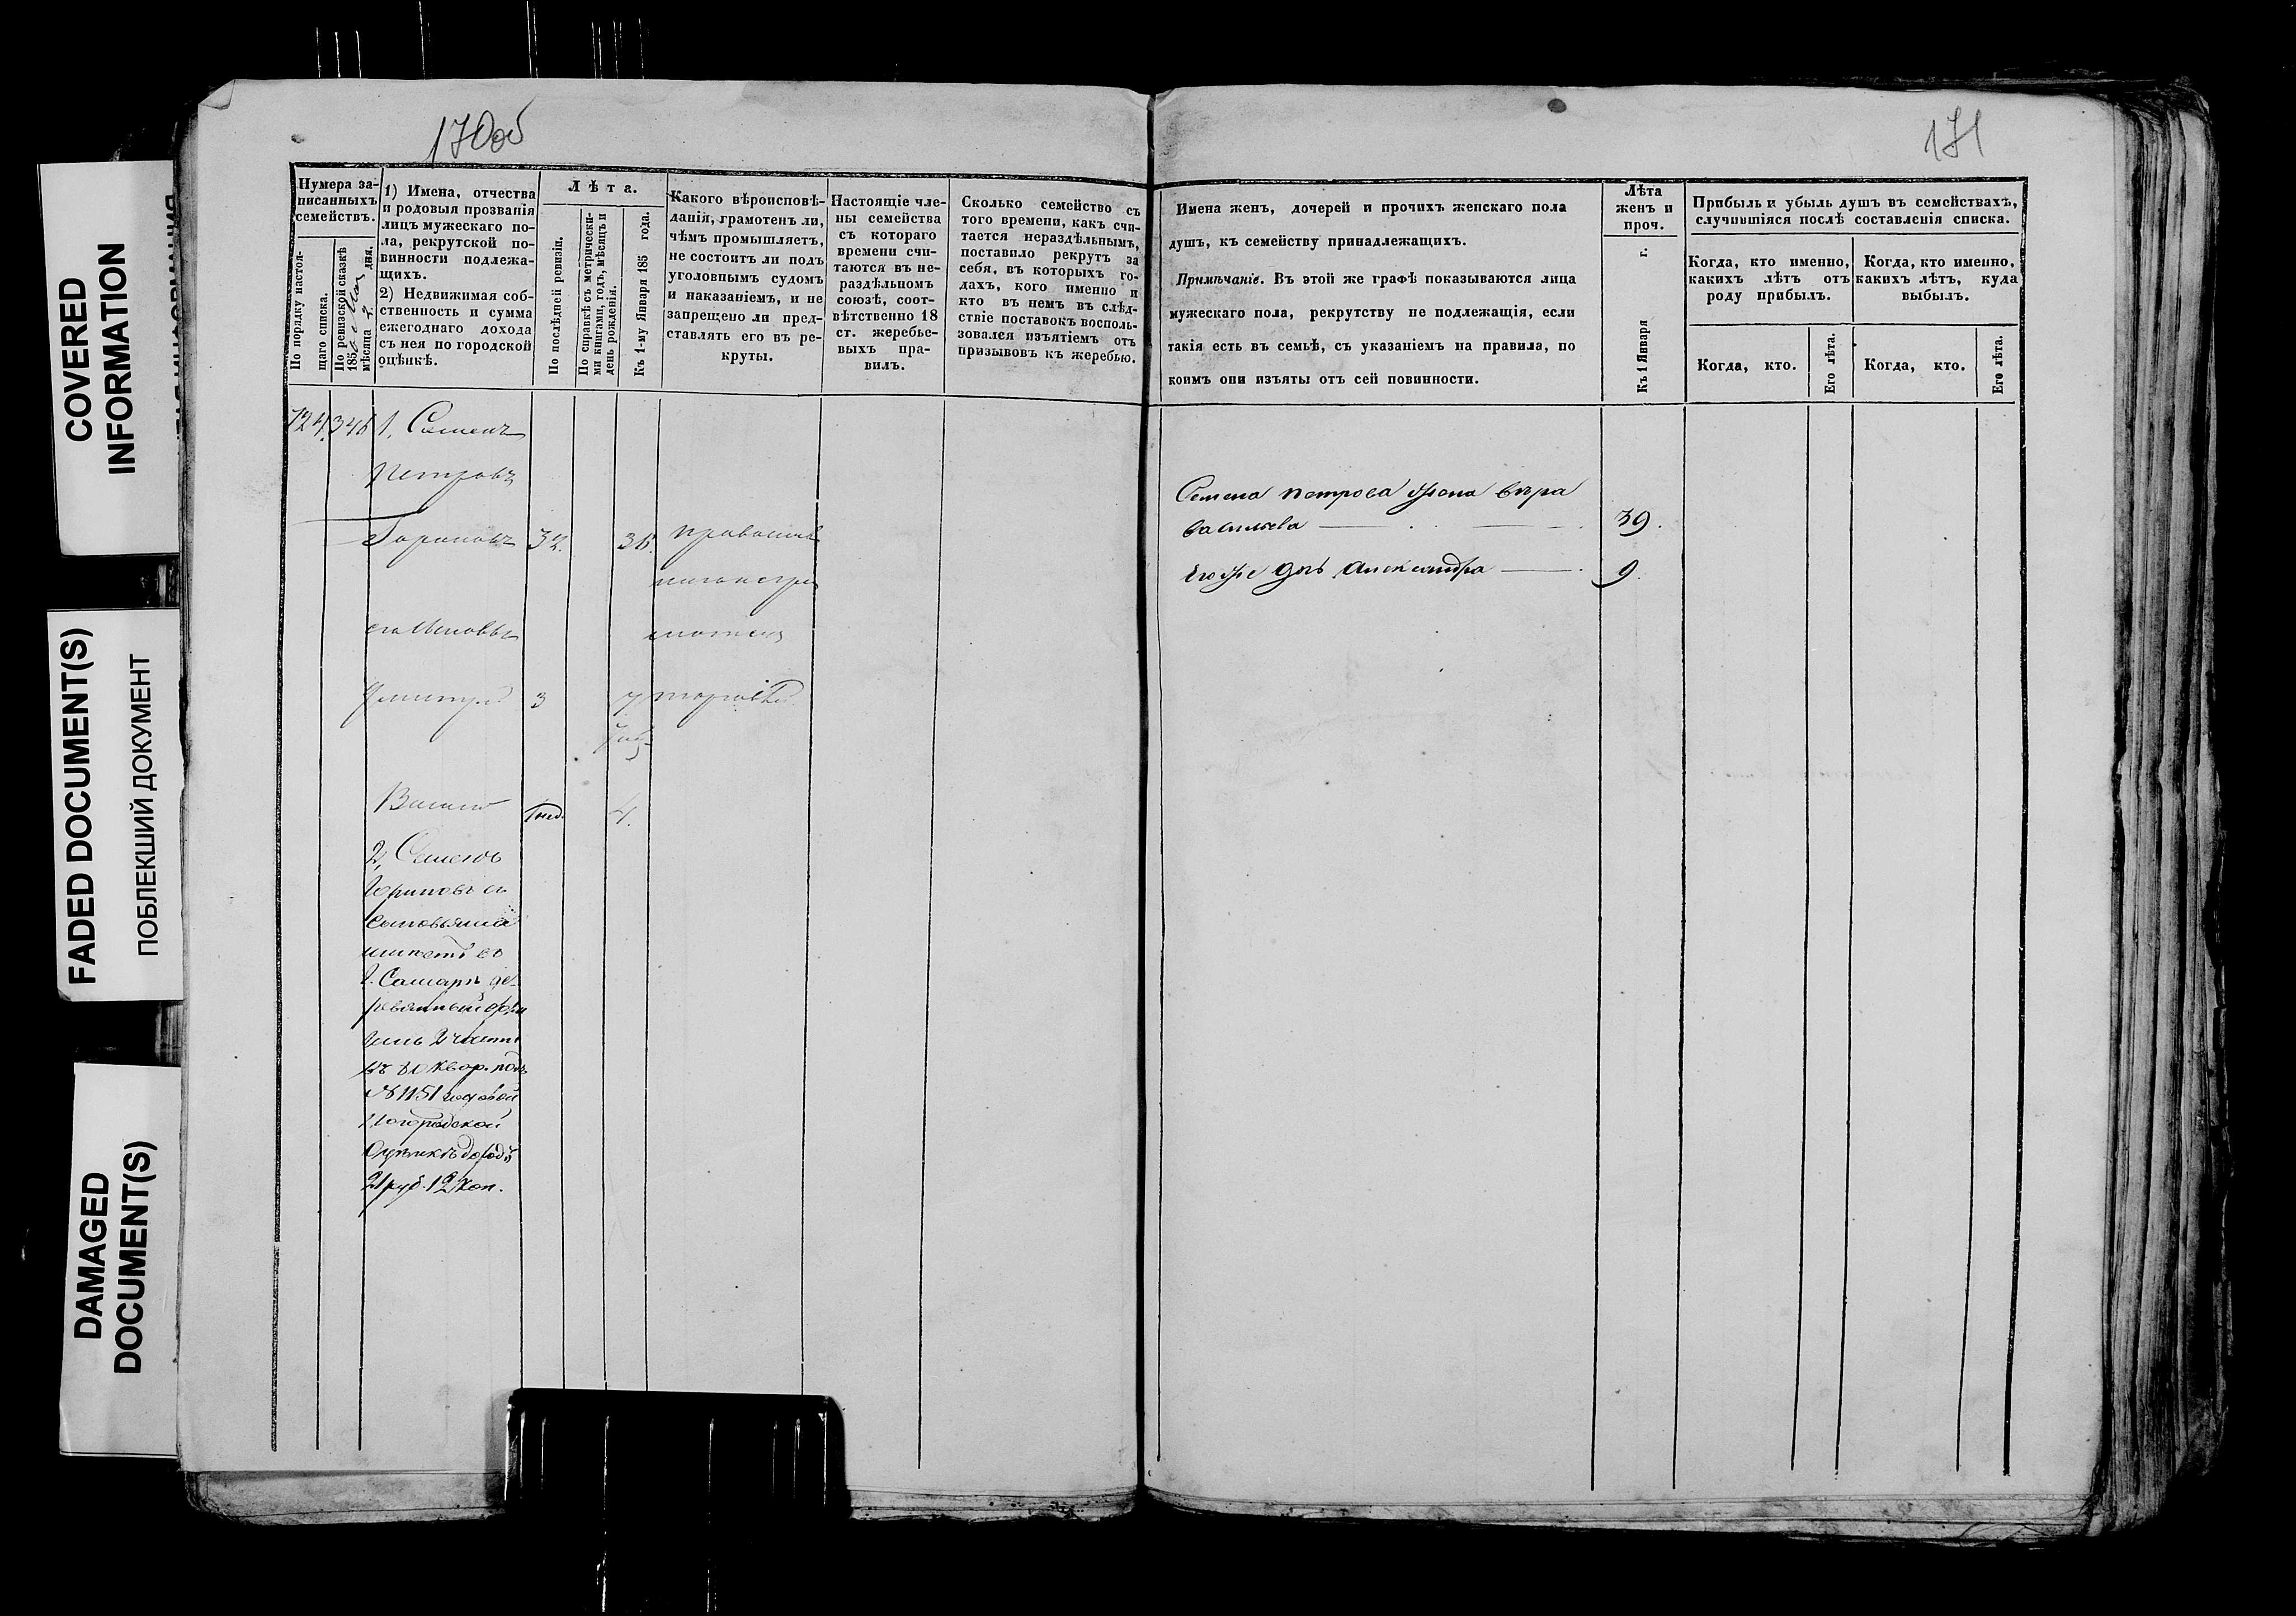 COVERED
INFORMATION
FADED DOCUMENT(S)
ПОБЛЕКШИЙ ДОКУМЕНТ
DAMAGED
DOCUMENT(S)
170об
Нумера за-
писанныхъ
семействъ.
По порядку настоя-
щаго списка.
По ревизской сказкѣ
185
мѣсяца
дня.
1) Имена, отчества
и родовыя прозванія
лицъ мужескаго по-
ла, рекрутской по-
винности подлежа-
щихъ.
2) Недвижимая соб-
ственность и сумма
ежегоднаго дохода
съ нея по городской
оцѣнкѣ.
Лѣта.
По послѣдней ревизіи.
По справкѣ съ метрически-
ми книгами, годъ, мѣсяцъ и
день рожденія.
Къ 1-му Января 185 года.
Какого вѣроисповѣ-
данія, грамотенъ ли,
чѣмъ промышляетъ,
не состоитъ ли подъ
уголовнымъ судомъ
и наказаніемъ, и не
запрещено ли пред-
ставлять его въ ре-
круты.
Настоящіе чле-
ны семейства
съ котораго
времени счи-
таются въ не-
раздѣльномъ
союзѣ, соот-
вѣтственно 18
ст. жеребье-
выхъ пра-
вилъ.
Сколько семейство съ
того времени, какъ счи-
тается нераздѣльнымъ,
поставило рекрутъ за
себя, въ которыхъ го-
дахъ, кого именно и
кто въ немъ въ слѣд-
ствіе поставокъ восполь-
зовался изъятіемъ отъ
призывовъ къ жеребью.
124. 346 1. Семенъ
Петровъ
32. 36. православ
его сыновья
Дмитрій 3 7
Василій 4.
2, Семенъ
сыновьями
имѣетъ въ
г. Самарѣ де-
ревянный фли
гель 2 части
въ квар. подъ
№ 1151
городской
оцѣнкѣ доходъ
21 руб. 12 коп.
171
Имена женъ, дочерей и прочихъ женскаго пола
душъ, къ семейству принадлежащихъ.
Примѣчаніе. Въ этой же графѣ показываются лица
мужескаго пола, рекрутству не подлежащія, если
такія есть въ семьѣ, съ указаніемъ на правила, по
коимъ они изъяты отъ сей повинности.
Лѣта
женъ и
проч.
Къ 1 Января г.
Прибыль и убыль душъ въ семействахъ,
случившіяся послѣ составленія списка.
Когда, кто именно,
какихъ лѣтъ отъ
роду прибылъ.
Когда, кто именно,
какихъ лѣтъ, куда
выбылъ.
Когда, кто.
Его лѣта.
Когда, кто.
Его лѣта.
Семена Петрова жена Вѣра
Васильева 39.
Его же дочь Александра 9.